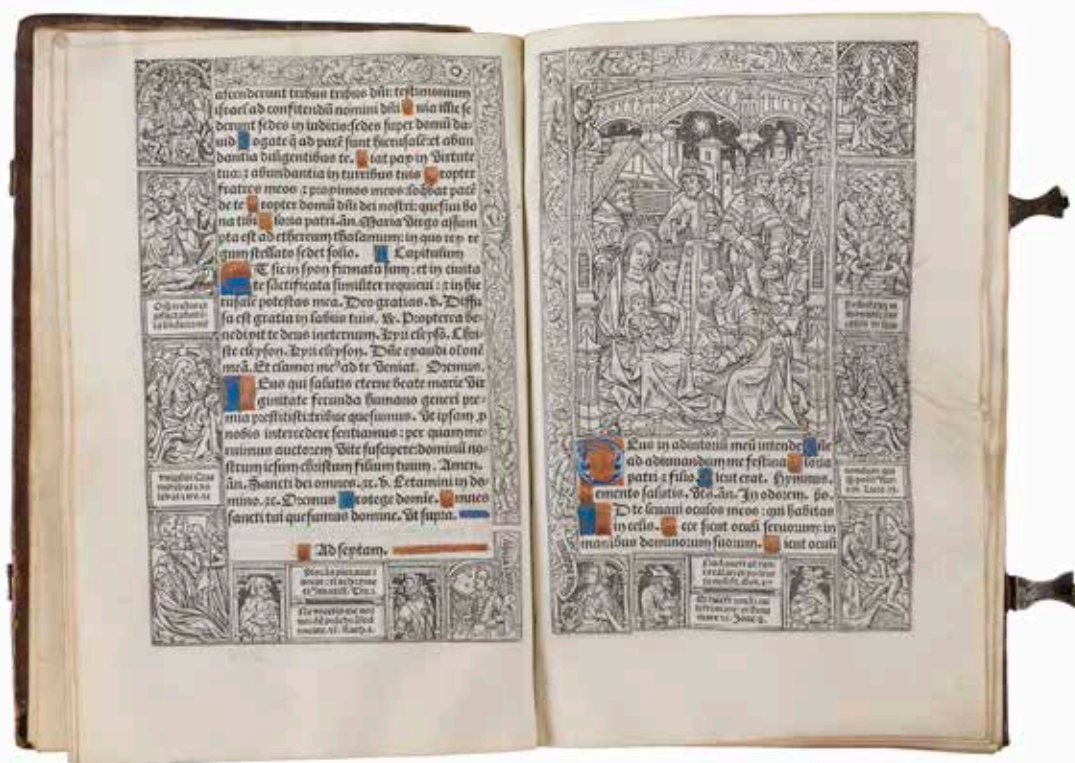 ascenderunt tribus tribus dñi: testimonium
israel ad confitendũ nomini dñi Quia illic se
derunt sedes in iudicio: sedes super domũ da
uid Rogate q̃ ad pacẽ sunt hierusalẽ: et abun
dantia diligentibus te. Fiat pax in virtute
tua: ⁊ abundantia in turribus tuis Propter
fratres meos ⁊ proximos meos: loq̃bar pacẽ
de te Propter domũ dñi dei nostri: quesiui bo
na tibi Gloria patri. añ. Maria virgo assum
pta est ad ethereum thalamum: in quo rex re
gum stellato sedet solio. Capitulum
ET sic in syon firmata sum: et in ciuita
te sãctificata similiter requieui: ⁊ in hie
rusalẽ potestas mea. Deo gratias. v. Diffu
sa est gratia in labiis tuis. ℟. Propterea be-
nedixit te deus in eternum. Kyri eleysõ. Chri-
ste eleyson. Kyri eleyson. Dñe exaudi oĩonẽ
meã. Et clamor meꝰ ad te veniat. Oremus.
DEus qui salutis eterne beate marie vir
ginitate fecunda humano generi pre-
mia prestitisti: tribue quesumus. Vt ipsam p
nobis intercedere sentiamus: per quam me-
ruimus auctorem vite suscipere: dominũ no-
strum iesum christum filium tuum. Amen.
añ. Sancti dei omnes. ⁊c. v. Letamini in do-
mino. ⁊c. Oremus Protege domĩe. Omnes
sancti tui quesumus domine. Vt supra.
Ad sextam.
DEus in adiutoriũ meũ intende Dñe
ad adiuuandum me festina Gloria
patri ⁊ filio. Sicut erat. Hymnus.
Memento salutis. Vt s̃. añ. In odorem. ps.
ADte leuaui oculos meos: qui habitas
in celis. Ecce sicut oculi seruorum: in
manibus dominorum suorum. Sicut oculi